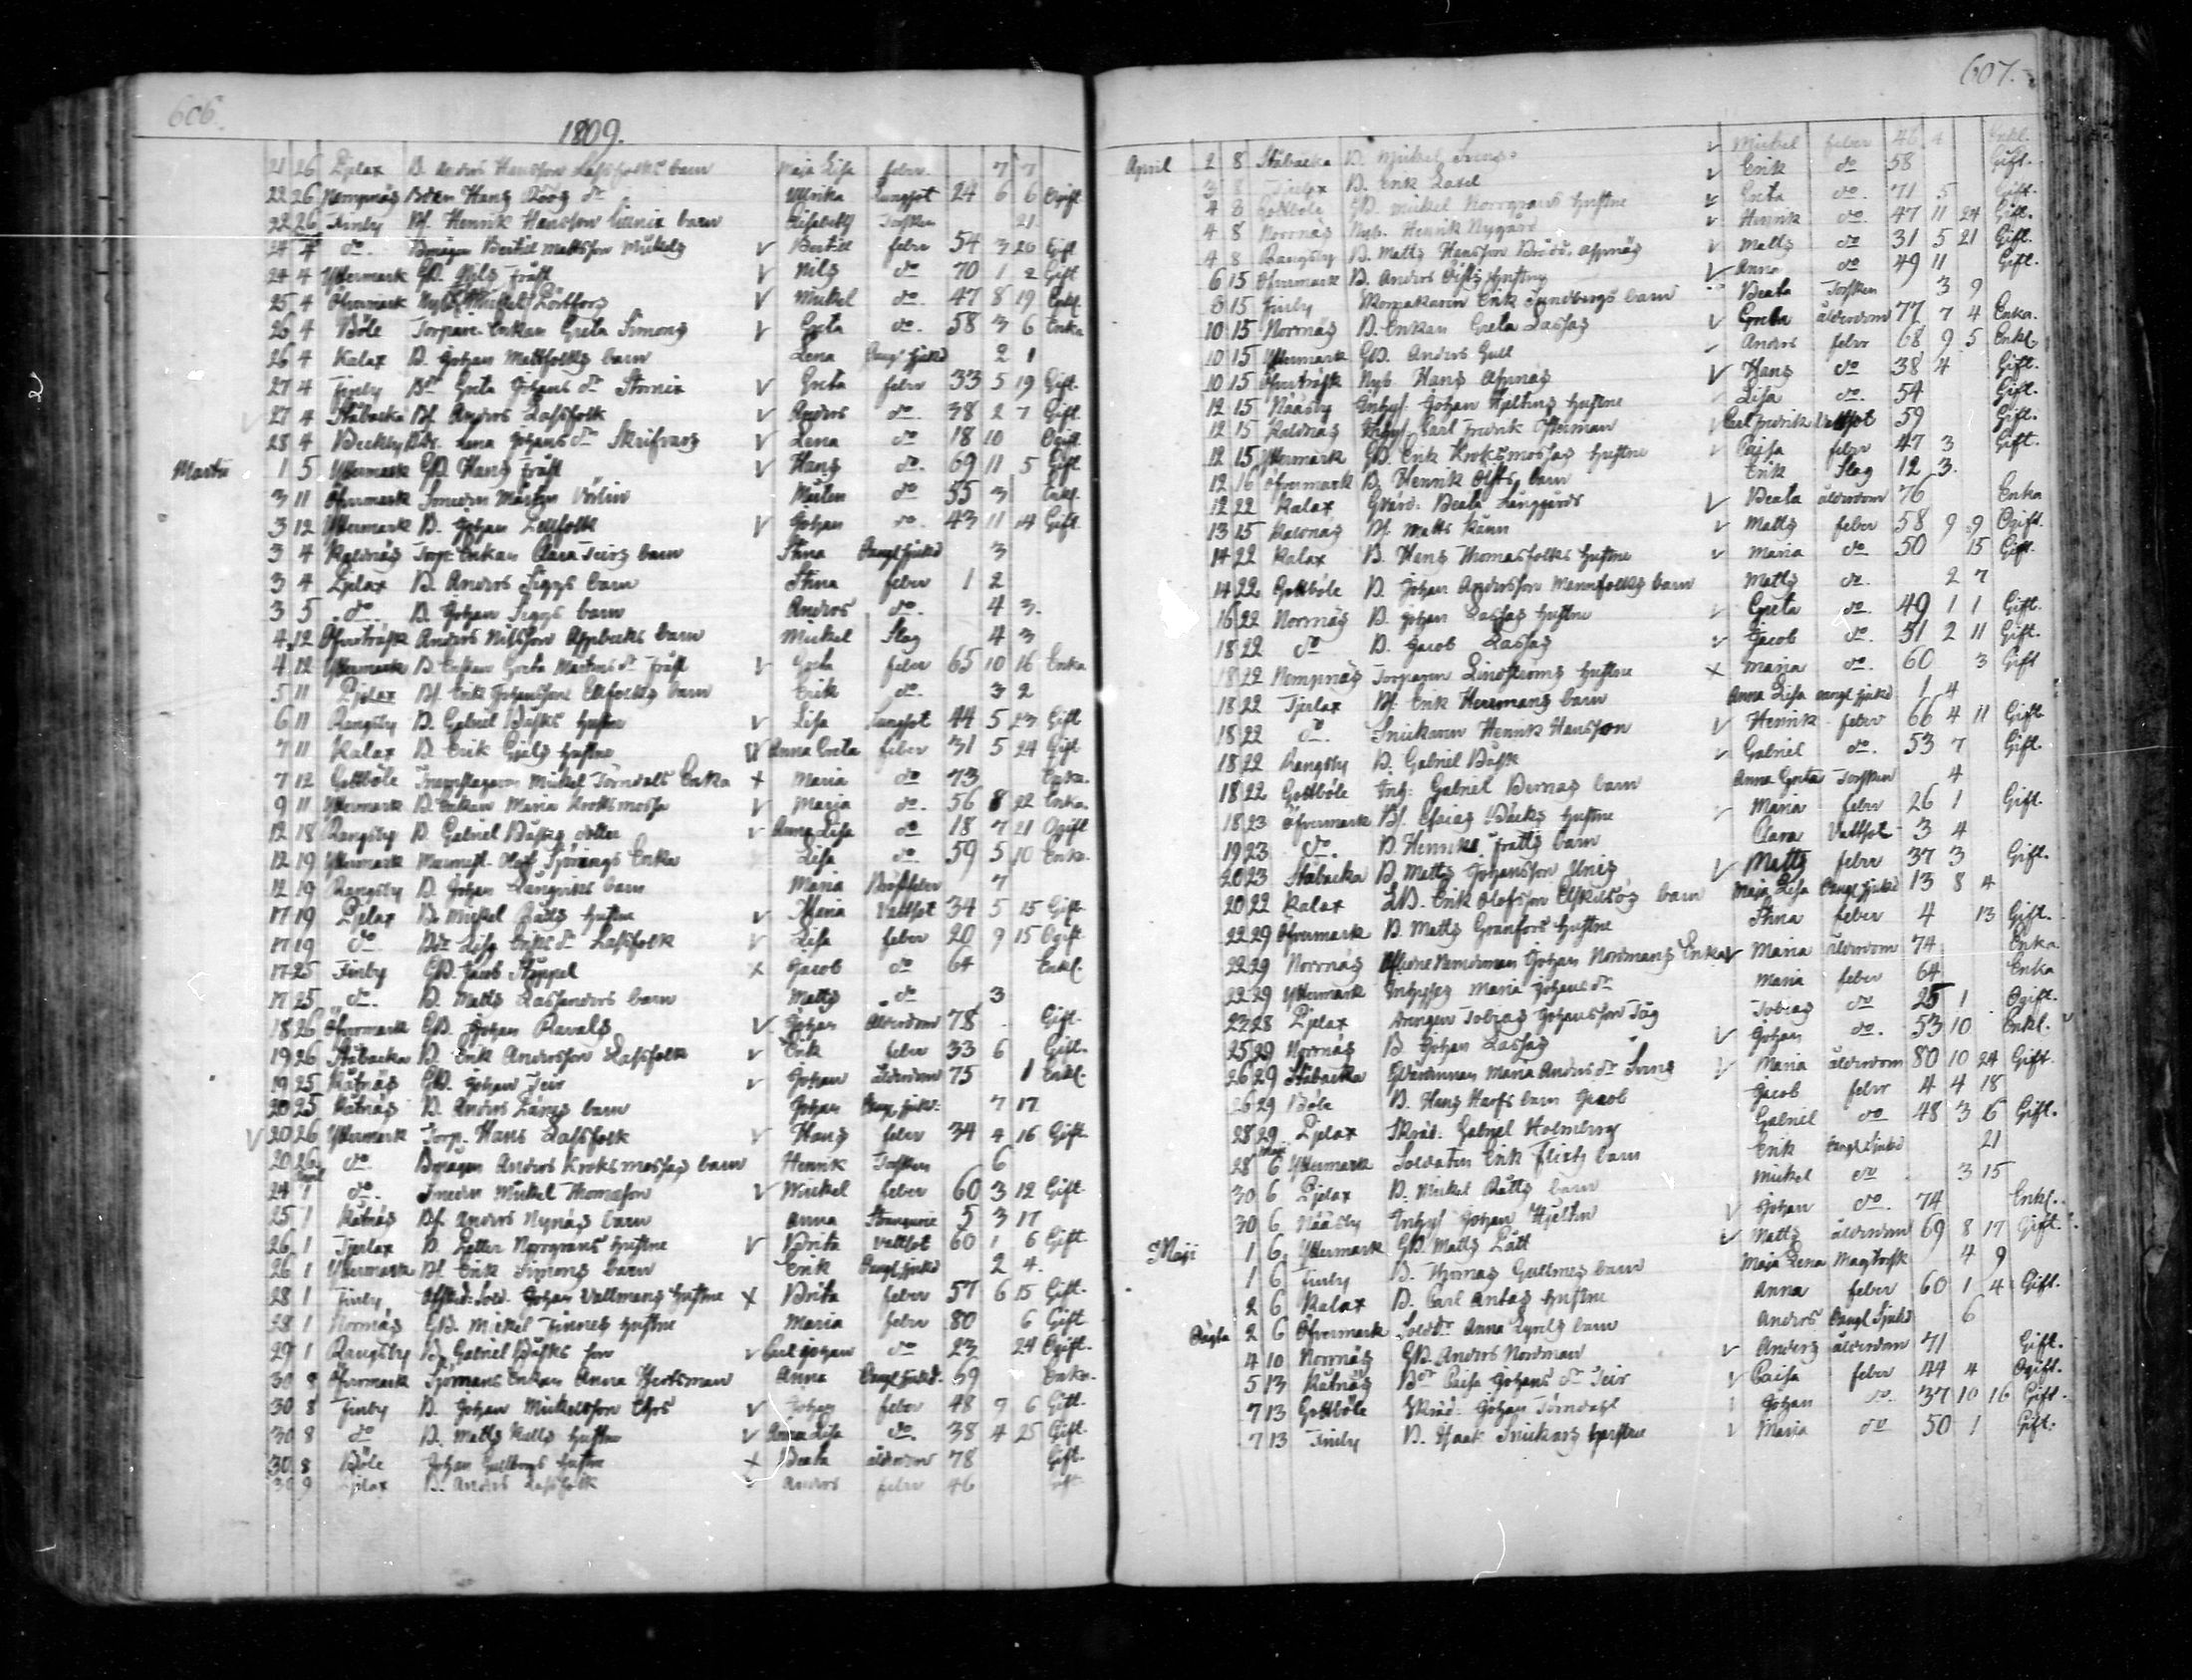 606.
1809.
21 26 Pjelax B. Anders Hansson Lassfolks barn Maja Lisa feber 7 7
22 26 Nempnäs Hans dr Ulrika Lungsot 24 6 6 Ogift
22 26 Finby Bf. Henrik Hansson barn Elisabeth Torsken 21
24 4 do. Bertil Mattsson Mickels V Bertil feber 54 3 20 Gift
24 4 Yttermark GB. Nils Träsk V Nils do 70 1 2 Gift
25 4 Öfvermark Nyb. Mickel V Mickel do. 47 8 19 Enkl.
26 4 Böle Torpare Enkan Greta Simons V Greta do. 58 3 6 Enka
26 4 Kalax B. Johan Mattfolks barn Lena Bangl sjukd 2 1
27 4 Finby Bdr Greta Johans dr V Greta feber 33 5 19 Gift.
27 4 Ståbacka Bf. Anders Lassfolk V Anders do. 38 2 7 Gift.
28 4 Lena Johans dr Skrifvars V Lena do 18 10 Ogift
Martii 1 5 Yttermark GB. Hans Träsk V Hans do. 69 11 5 Gift
3 11 Öfvermark Smeden Mårten Mårten do 55 3 Enkl.
3 12 Yttermark B. Johan V Johan do. 43 11 14 Gift.
3 4 Kaldnäs Torp. Enkan Teirs barn Stina Bangl sjukd 3
3 4 Pjelax B. Anders Siggs barn Stina feber 1 2
3 5 do B. Johan Siggs barn Anders do. 4 3.
4 12 Öfverträsk Anders Nilsson barn Mickel Slag 4 3
4 12 Yttermark B. Enkan Greta Mårtens dr Träsk V Greta feber 65 10 16 Enka
5 11 Pjelax Bf. Erik Johansson barn Erik do. 3 2
6 11 Rangsby B. Gabriel Båsks hustru V Lisa Lungsot 44 5 23 Gift
7 11 Kalax B. Erik hustru V Anna Greta feber 31 5 24 Gift
7 12 Gottböle Mickel Törndals Enka + Maria do 73 Enka.
9 11 Yttermark B. Enkan Maria Kroksmossa V Maria do. 56 8 22 Enka.
12 18 Rangsby B. Gabriel Båsks dotter V Anna Lisa do 18 7 21 Ogift
12 19 Yttermark Enka Lisa do. 59 5 10 Enka.
12 19 Rangsby B. Johan barn Maria Bröstfeber 7
17 19 Pjelax B. Mickel Rätts hustru V Maria Vattsot 34 5 15 Gift
17 19 do. Bdr Lisa Eriks dr Lassfolk V Lisa feber 20 9 15 Ogift
17 25 Finby GB. Jacob + Jacob do 64 Enkl.
17 25 do. B. Matts Lassanders barn Matts do 3
18 26 Öfvermark GB. Johan Ravals V Johan Ålderdom 78 Gift.
19 26 Ståbacka B. Erik Andersson Lassfolk V Erik feber 33 6 Gift.
19 25 Kåtnäs GB. Johan Teir V Johan ålderdom 75 1 Enkl.
20 25 Kåtnäs B. Anders barn Johan Bang. sjukd. 7 17
V 20 26 Yttermark Torp. Hans Lassfolk V Hans feber 34 4 16 Gift.
20 26 do. Anders Kroksmossas barn Henrik Torsken 6
24 1 do. Smeden Mickel Thomasson V Mickel feber 60 3 12 Gift.
25 1 Kåtnäs Bf. Anders Nynäs barn Anna 5 3 17
26 1 Tjerlax B. Petter Norrgrans hustru V Brita Vattsot 60 1 6 Gift
26 1 Yttermark Bf. Erik Simons barn Erik Bangl sjukd 2 4.
28 1 Finby Afsked: Sold. Johan Vallmans hustru X Brita feber 57 6 15 Gift.
28 1 Norrnäs GB. Mickel Finnes hustru Maria feber 80 6 Gift
29 1 Rangsby B. Gabriel Båsks son V Carl Johan do 23 24 Ogift.
30 8 Öfvermark Sjömans Enkan Anna Anna Bangl sjukd. 69 Enka.
30 8 Finby B. Johan Mickelsson V Johan feber 48 9 6 Gift.
30 8 do B. Matts hustru V Anna Lisa do. 38 4 25 Gift.
30 8 Böle Johan Gullbergs hustru + Beata ålderdom 78 Gift.
30 9 Pjelax B. Anders Lassfolk Anders feber 46 Gift.
607.
April 2 8 Ståbacka B. Mickel Svens V Mickel feber 46 4 Enkl.
3 8 Tjerlax B. Erik V Erik do 58 Gift.
4 8 Gottböle GB. Mickel Norrgrans hustru V Greta do. 71 5 Gift.
4 8 Norrnäs Nyb. Henrik Nygård V Henrik do. 47 11 24 Gift.
4 8 Rangsby B. Matts Hansson V Matts do 31 5 21 Gift.
6 15 Öfvermark B. Anders hustru V Anna do 49 11 Gift.
8 15 Finby Erik Sundbergs barn Beata Torsken 3 9
10 15 Norrnäs B. Enkan Greta Lassas V Greta ålderdom 77 7 4 Enka.
10 15 Yttermark GB. Anders Gull Anders feber 68 9 5 Enkl.
10 15 Öfverträsk Nyb. Hans V Hans do 38 4 Gift.
12 15 Nääsby Inhys. Johan Hjeltins hustru Lisa do. 54 Gift.
12 15 Kaldnäs Inhys. Carl Fredrik Österman V Carl Fredrik Vattsot 59 Gift.
12 15 Yttermark GB. Erik Kroksmossas hustru V Caisa feber 47 3 Gift.
12 16 Öfvermark B. Henrik barn Erik Slag 12 3.
12 22 Kalax Beata Långgårds V Beata ålderdom 76 Enka
13 15 Kaldnäs Bf. Matts V Matts feber 58 9 9 Ogift.
14 22 Kalax B. Hans Thomasfolks hustru V Maria do 50 15 Gift.
14 22 Gottböle B. Johan Andersson Mannfolks barn Matts do. 2 7
16 22 Norrnäs B. Johan Lassas hustru V Greta do. 49 1 1 Gift.
18 22 do B. Jacob Lassas V Jacob do. 51 2 11 Gift.
18 22 Nempnäs Torparen Lindströms hustru X Maria do. 60 3 Gift
18 22 Tjerlax Bf. Erik Herrmans barn Anna Lisa Bangl sjukd 1 4
18 22 do. Snickaren Henrik Hansson V Henrik feber 66 4 11 Gift
18 22 Rangsby B. Gabriel Båsk V Gabriel do. 53 7 Gift.
18 22 Gottböle Inh. Gabriel barn Anna Greta Torsken 4
18 23 Öfvermark Bf. Esaias Bäcks hustru Maria feber 26 1 Gift.
19 23 do. B. Henriks barn Clara Vattsot 3 4
20 23 Ståbacka B. Matts Johansson V Matts feber 37 3 Gift.
20 22 Kalax LB. Erik Olofsson barn Maja Lisa Bangl sjukd 13 8 4
22 29 Öfvermark B. Matts Granfors hustru Stina feber 4 13 Gift.
22 29 Norrnäs Johan Nordmans Enka V Maria ålderdom 74 Enka
22 29 Yttermark Inhyses Maria Johans dr Maria feber 64 Enka
23 28 Pjelax Drengen Tobias Johansson Tobias do 25 1 Ogift.
25 29 Norrnäs B. Johan Lassas V Johan do. 53 10 Enkl.
26 29 Ståbacka Maria Anders dr Svens V Maria ålderdom 80 10 24 Gift.
26 29 Böle B. Hans Harfs barn Jacob Jacob feber 4 4 18
28 29 Pjelax Skräd: Gabriel Holmberg Gabriel do 48 3 6 Gift.
28 6 Yttermark Soldaten Erik barn Erik Bangl Sjukd 21
30 6 Pjelax B. Mickel Rätts barn Mickel do 3 15
30 6 Nääsby Inhys. Johan Hjeltin V Johan do. 74 Enkl.
Maji 1 6 Yttermark GB. Matts Lått V Matts ålderdom 69 8 17 Gift.
1 6 Finby B. Thomas barn Maja Lena 4 9
2 6 Kalax B. Carl Antas hustru Anna feber 60 1 4 Gift.
Oägta 2 6 Öfvermark Solddr Anna barn Anders Bangl Sjukd 6
4 10 Norrnäs GB. Anders Nordman V Anders ålderdom 71 Gift.
5 13 Kåtnäs Bdr Caisa Johans dr Teir V Caisa feber 44 4 Ogift.
7 13 Gottböle Skräd: Johan Törndahl Johan do. 37 10 16 Gift.
7 13 Finby B. Isaak Snickars hustru V Maria do 50 1 Gift.